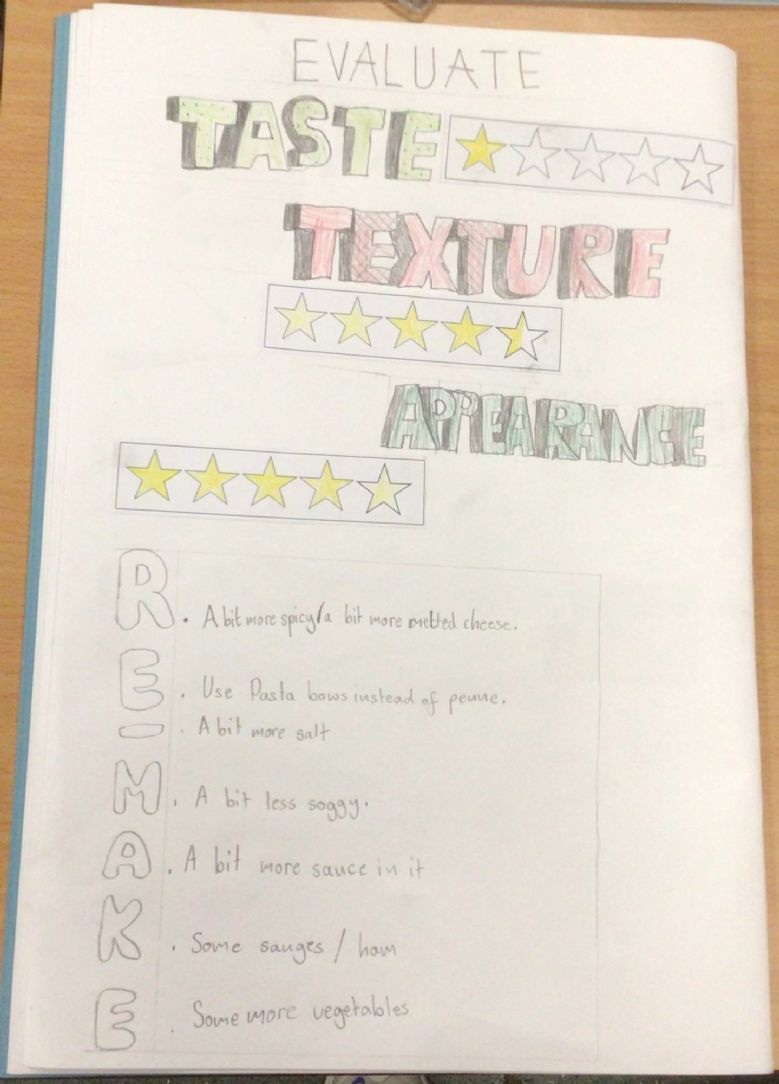 EVALUATE
TASTE
TEXTURE
APPEARANCE
RE-MAKE
. A bit more spicy/a bit more melted cheese.
. Use Pasta bows instead of penne.
. A bit more salt
. A bit less soggy.
. A bit more sauce in it
. Some sauges / ham
. Some more vegetables